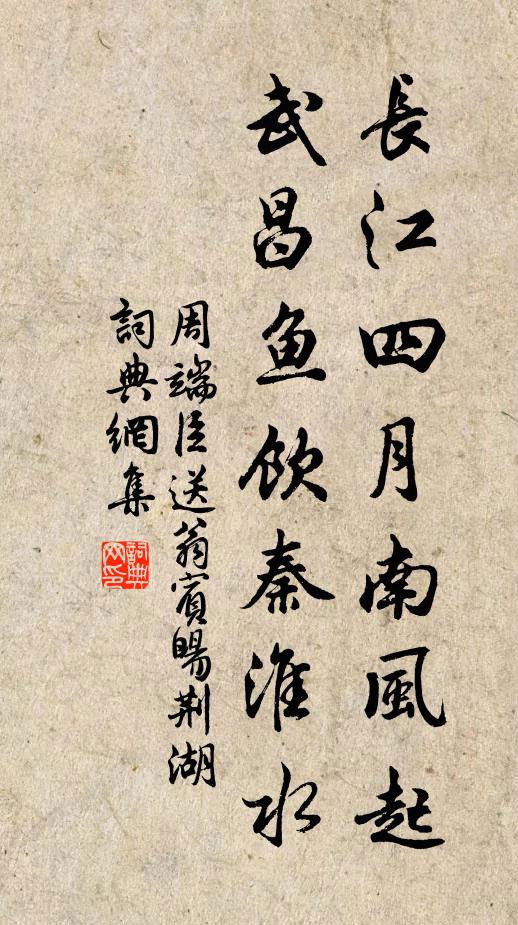 長江四月南風起
武昌鱼飲秦淮水
周端臣送翁賓暘荆湖
詞典網集
詞典
网印